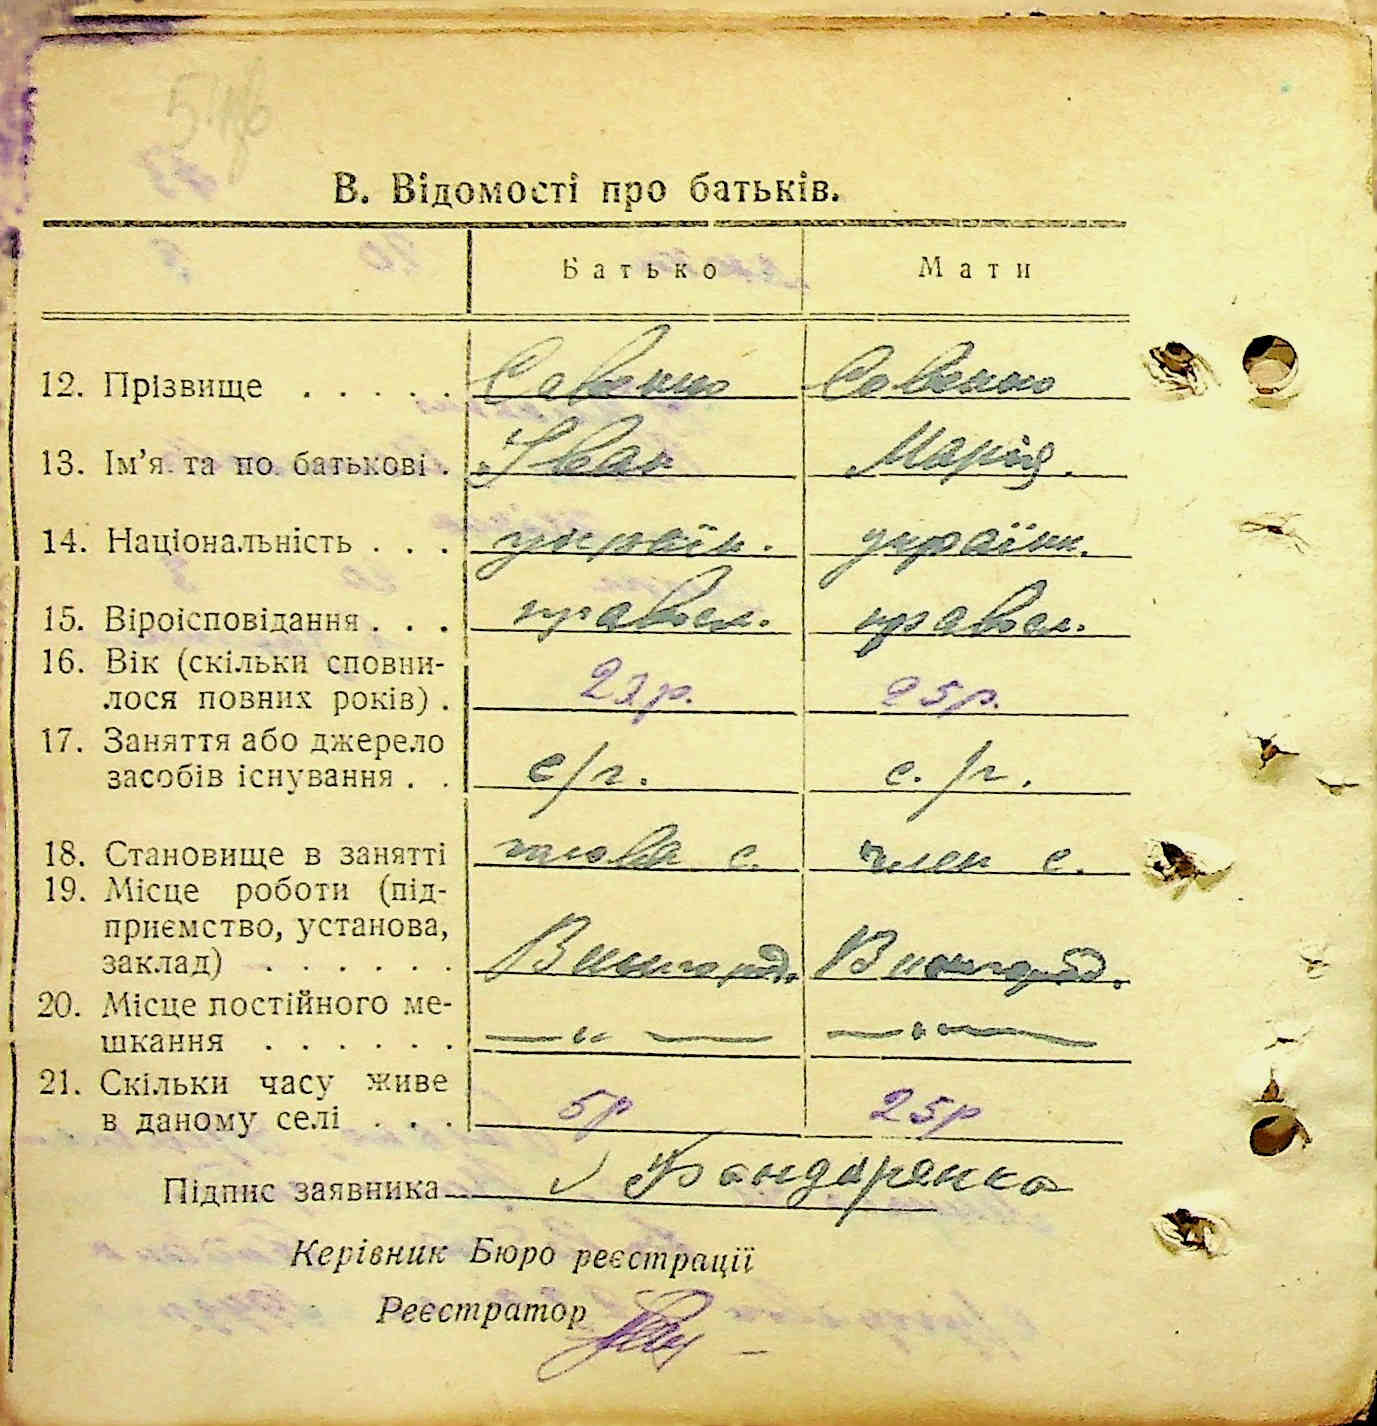 В. Відомості про батьків.
Батько Мати
12. Прізвище . . . . . Савенко Савенко
13. Ім'я та по батькові . Іван Марія.
14. Національність . . . україн. українк.
15. Віроісповідання . . . правосл. правосл.
16. Вік (скільки сповни-
лося повних років) . 23р. 25р.
17. Заняття або джерело
засобів існування . . с/г. с./г.
18. Становище в занятті голова с. член с.
19. Місце роботи (під-
приємство, установа,
заклад) . . . . . . Вишгород. Вишгород.
20. Місце постійного ме-
шкання . . . . . . — „ — — „ —
21. Скільки часу живе
в даному селі . . . 5р 25р
Підпис заявника Бондаренко
Керівник Бюро реєстрації
Реєстратор